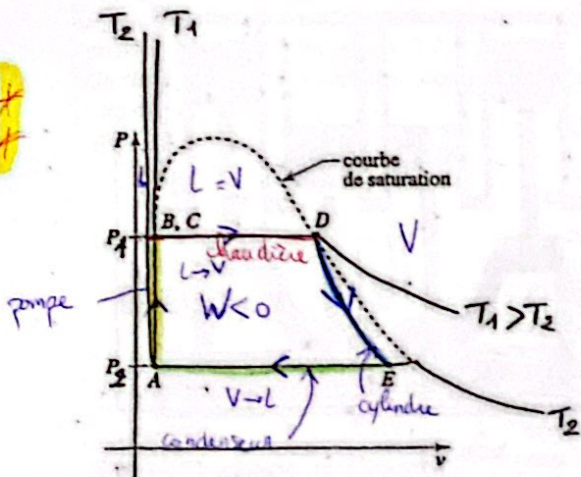 T₂ T₁
P
L
L = V
courbe
de saturation
B, C
D
V
P₁
chaudière
L→V
pompe
W<0
T₁ > T₂
P₂
A
E
V→L
cylindre
T₂
condenseur
v